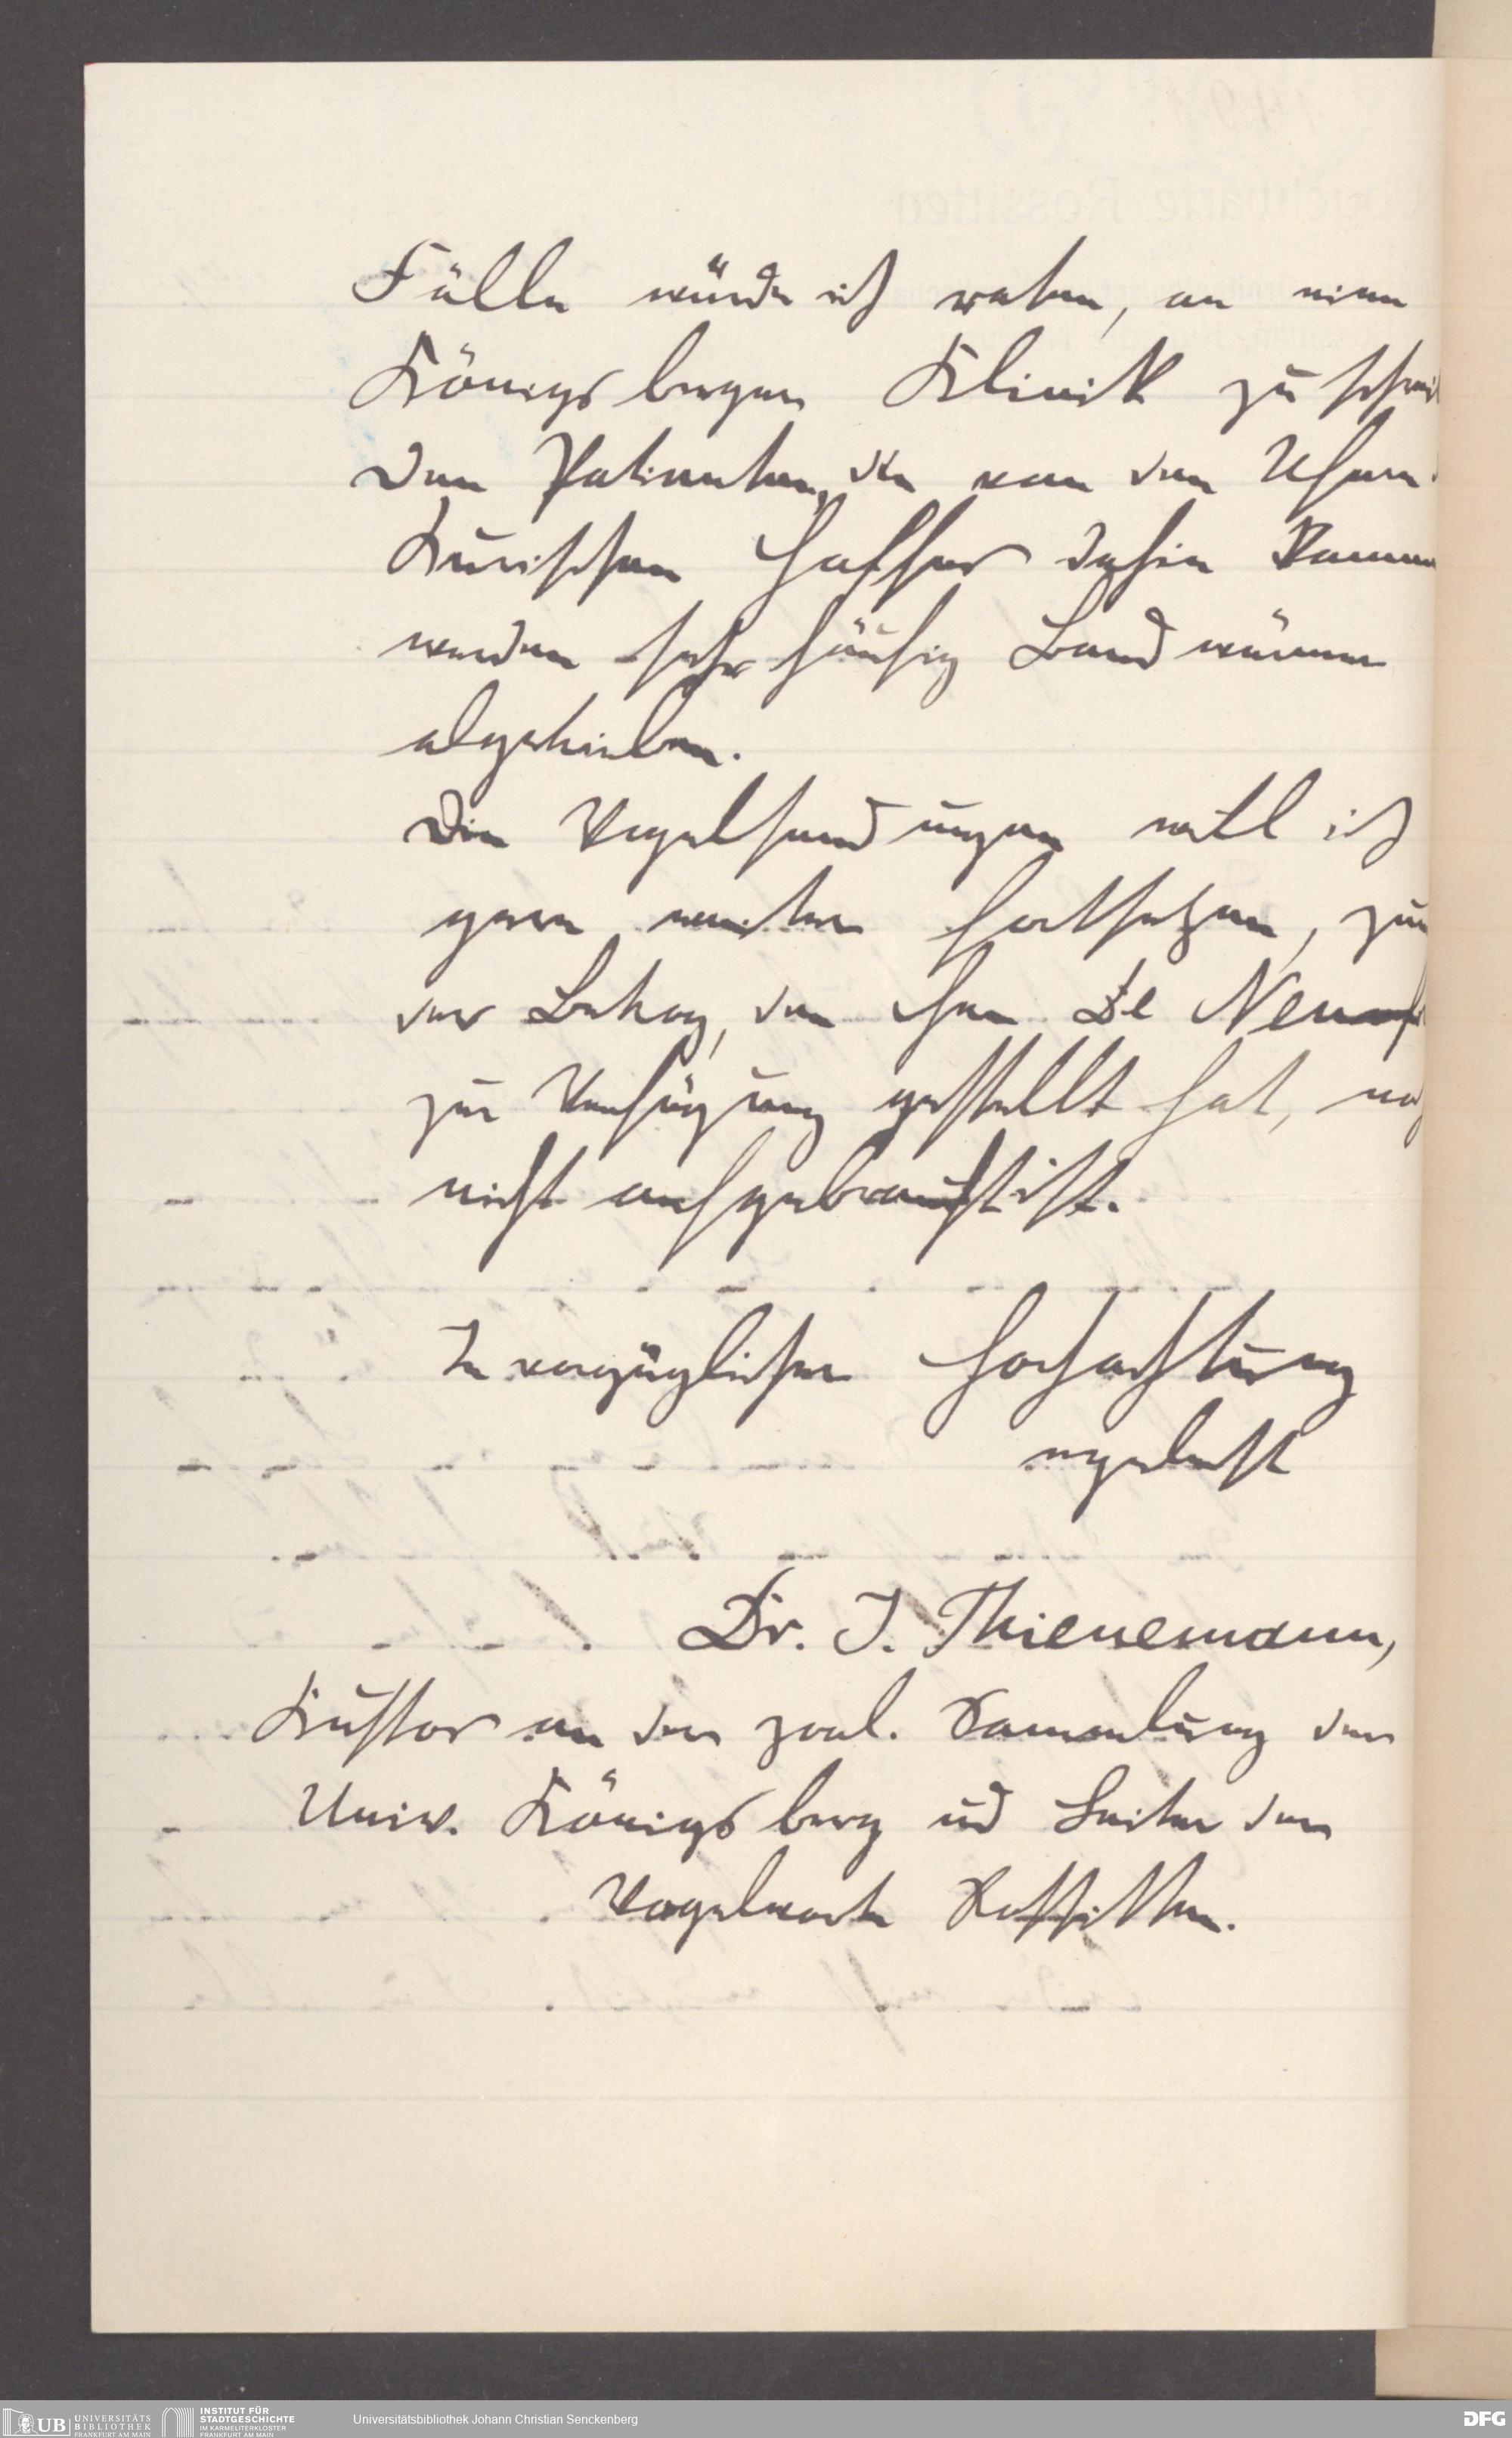 Fälle würde ich raten, an eine
Königsberger Klinik zu schrei
Den Patienten, die von den Ufern
Kurischen Haffes dahin komm
werden sehr häufig Bandwürmer
abgetrieben.
Die Vogelsendungen will ich
gern weiter fortsetzen, zum
der Betrag, den Herr De Neuf
zur Verfügung gestellt hat, noch
nicht aufgebraucht ist.
In vorzüglicher Hochachtung
ergebenst
Dr. J. Thienemann,
Kustos an der zool. Sammlung der
Univ. Königsberg und Leiter der
Vogelwarte Rossitten.
UB UNIVERSITÄTS BIBLIOTHEK FRANKFURT AM MAIN
INSTITUT FÜR STADTGESCHICHTE IM KARMELITERKLOSTER FRANKFURT AM MAIN
Universitätsbibliothek Johann Christian Senckenberg
DFG